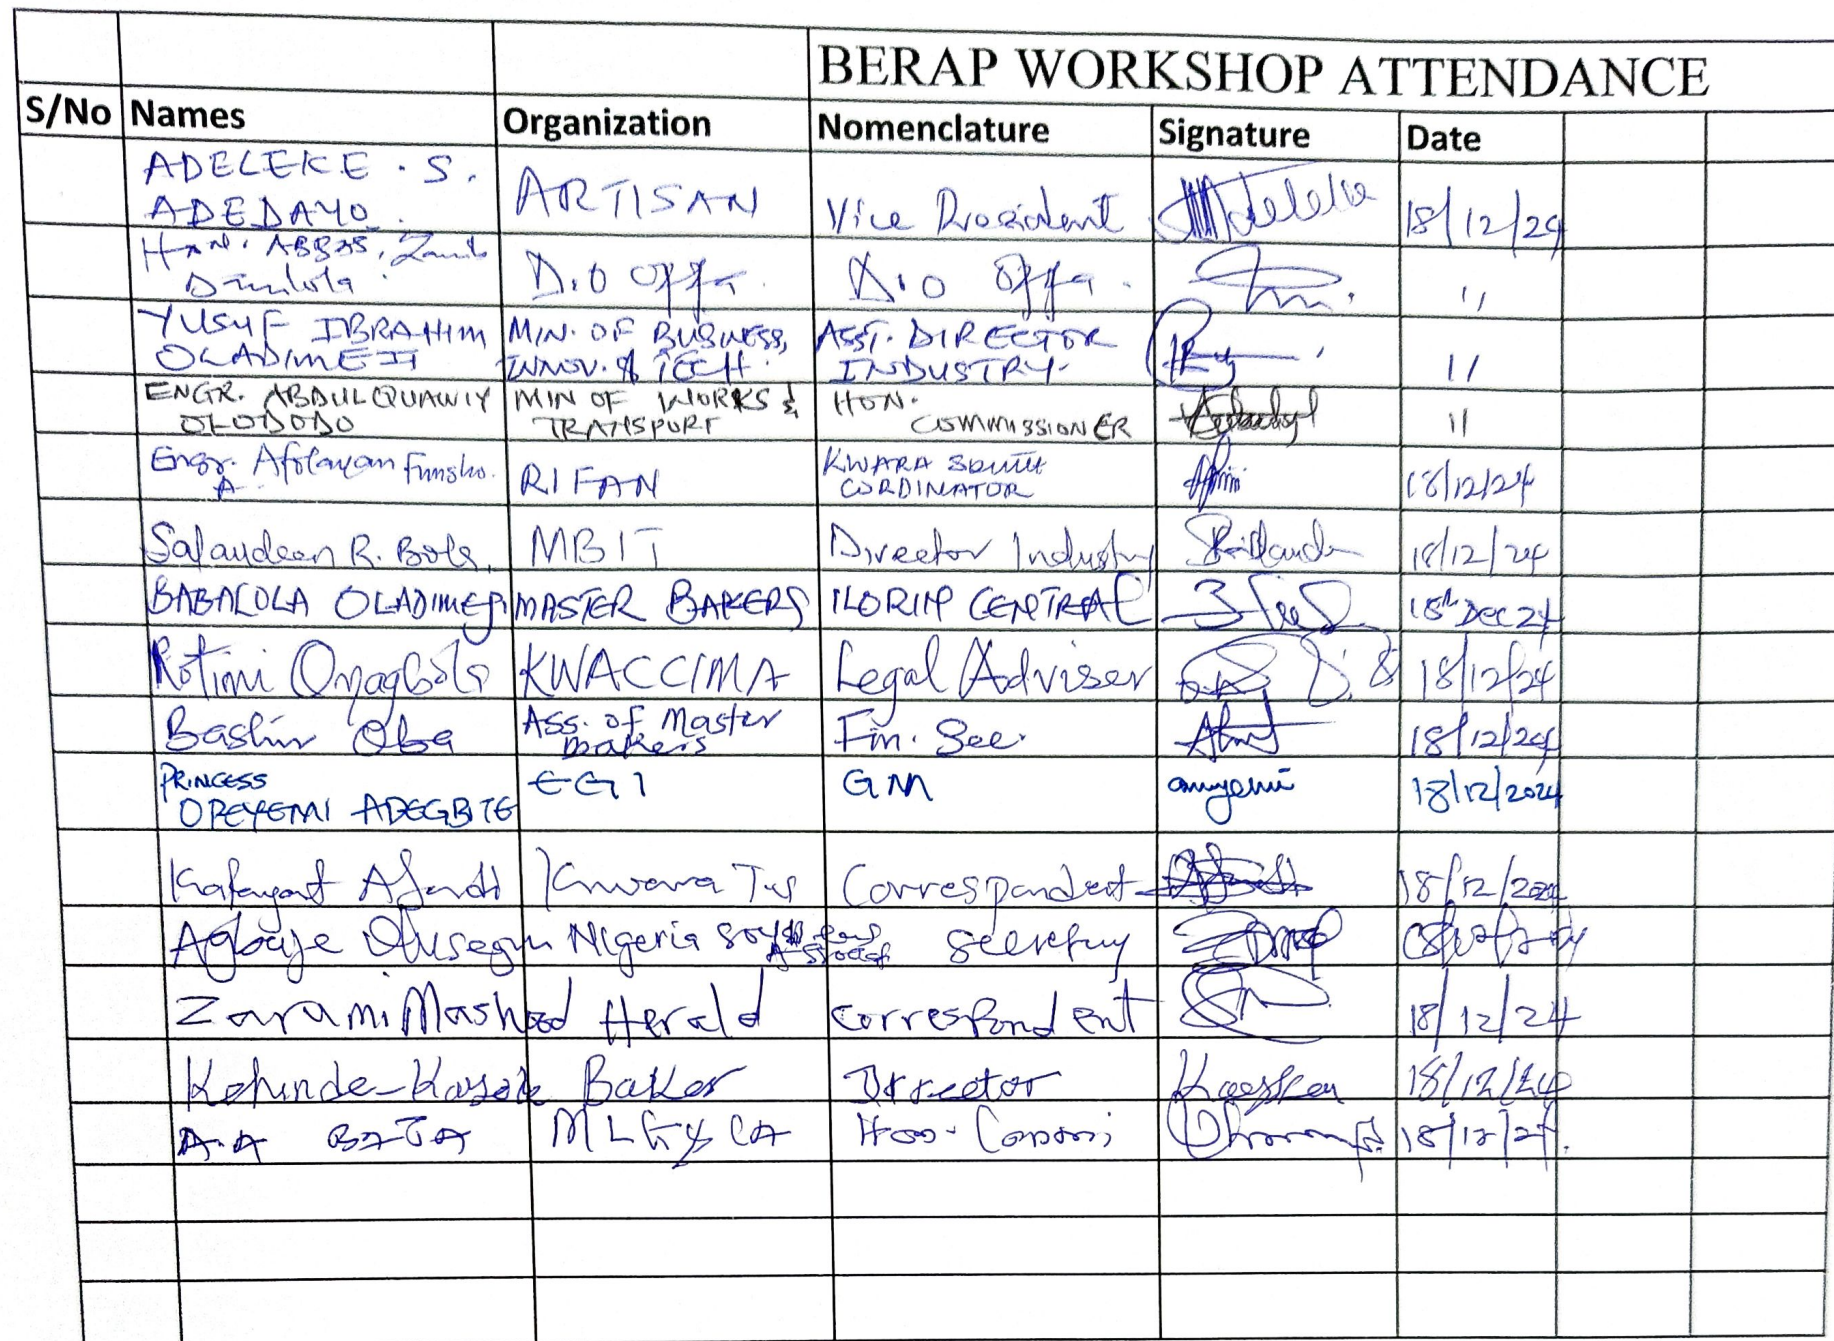 BERAP WORKSHOP ATTENDANCE
S/No Names Organization Nomenclature Signature Date
ADELEKE . S. ADEDAYO ARTISAN Vice President Adeleke 18/12/24
Hon. ABBAS, D.O Offa. D.O Offa. 11
YUSUF IBRAHIM OLADIMEJI MIN. OF BUSINESS, INNOV. & TECH. ASST. DIRECTOR INDUSTRY. 11
ENGR. ABDULQUAWIY OLODODO MIN OF WORKS & TRANSPORT HON. COMMISSIONER 11
Engr. Afolayan Funsho. A RIFAN KWARA SOUTH CORDINATOR 18/12/24
Salaudeen R. Bola, MBIT Director Industry 18/12/24
BABALOLA OLADIMEJI MASTER BAKERS ILORIN CENTRAL 18th DEC 24
Rotimi Oyagbola KWACCIMA Legal Adviser 18/12/24
Bashir Oba Ass. of Master Bakers Fin. Sec. 18/12/24
PRINCESS OPEYEMI ADEGBITE EGI GM 18/12/2024
Kafayat Kwara Correspondent 18/12/2024
Agbaje Olusegun Nigeria Secretary
Zarami Mashood Herald Correspondent 18/12/24
Kehinde-Kayode Baker Director 18/12/24
A.A BATA MLG & CA Hon. 18/12/24.